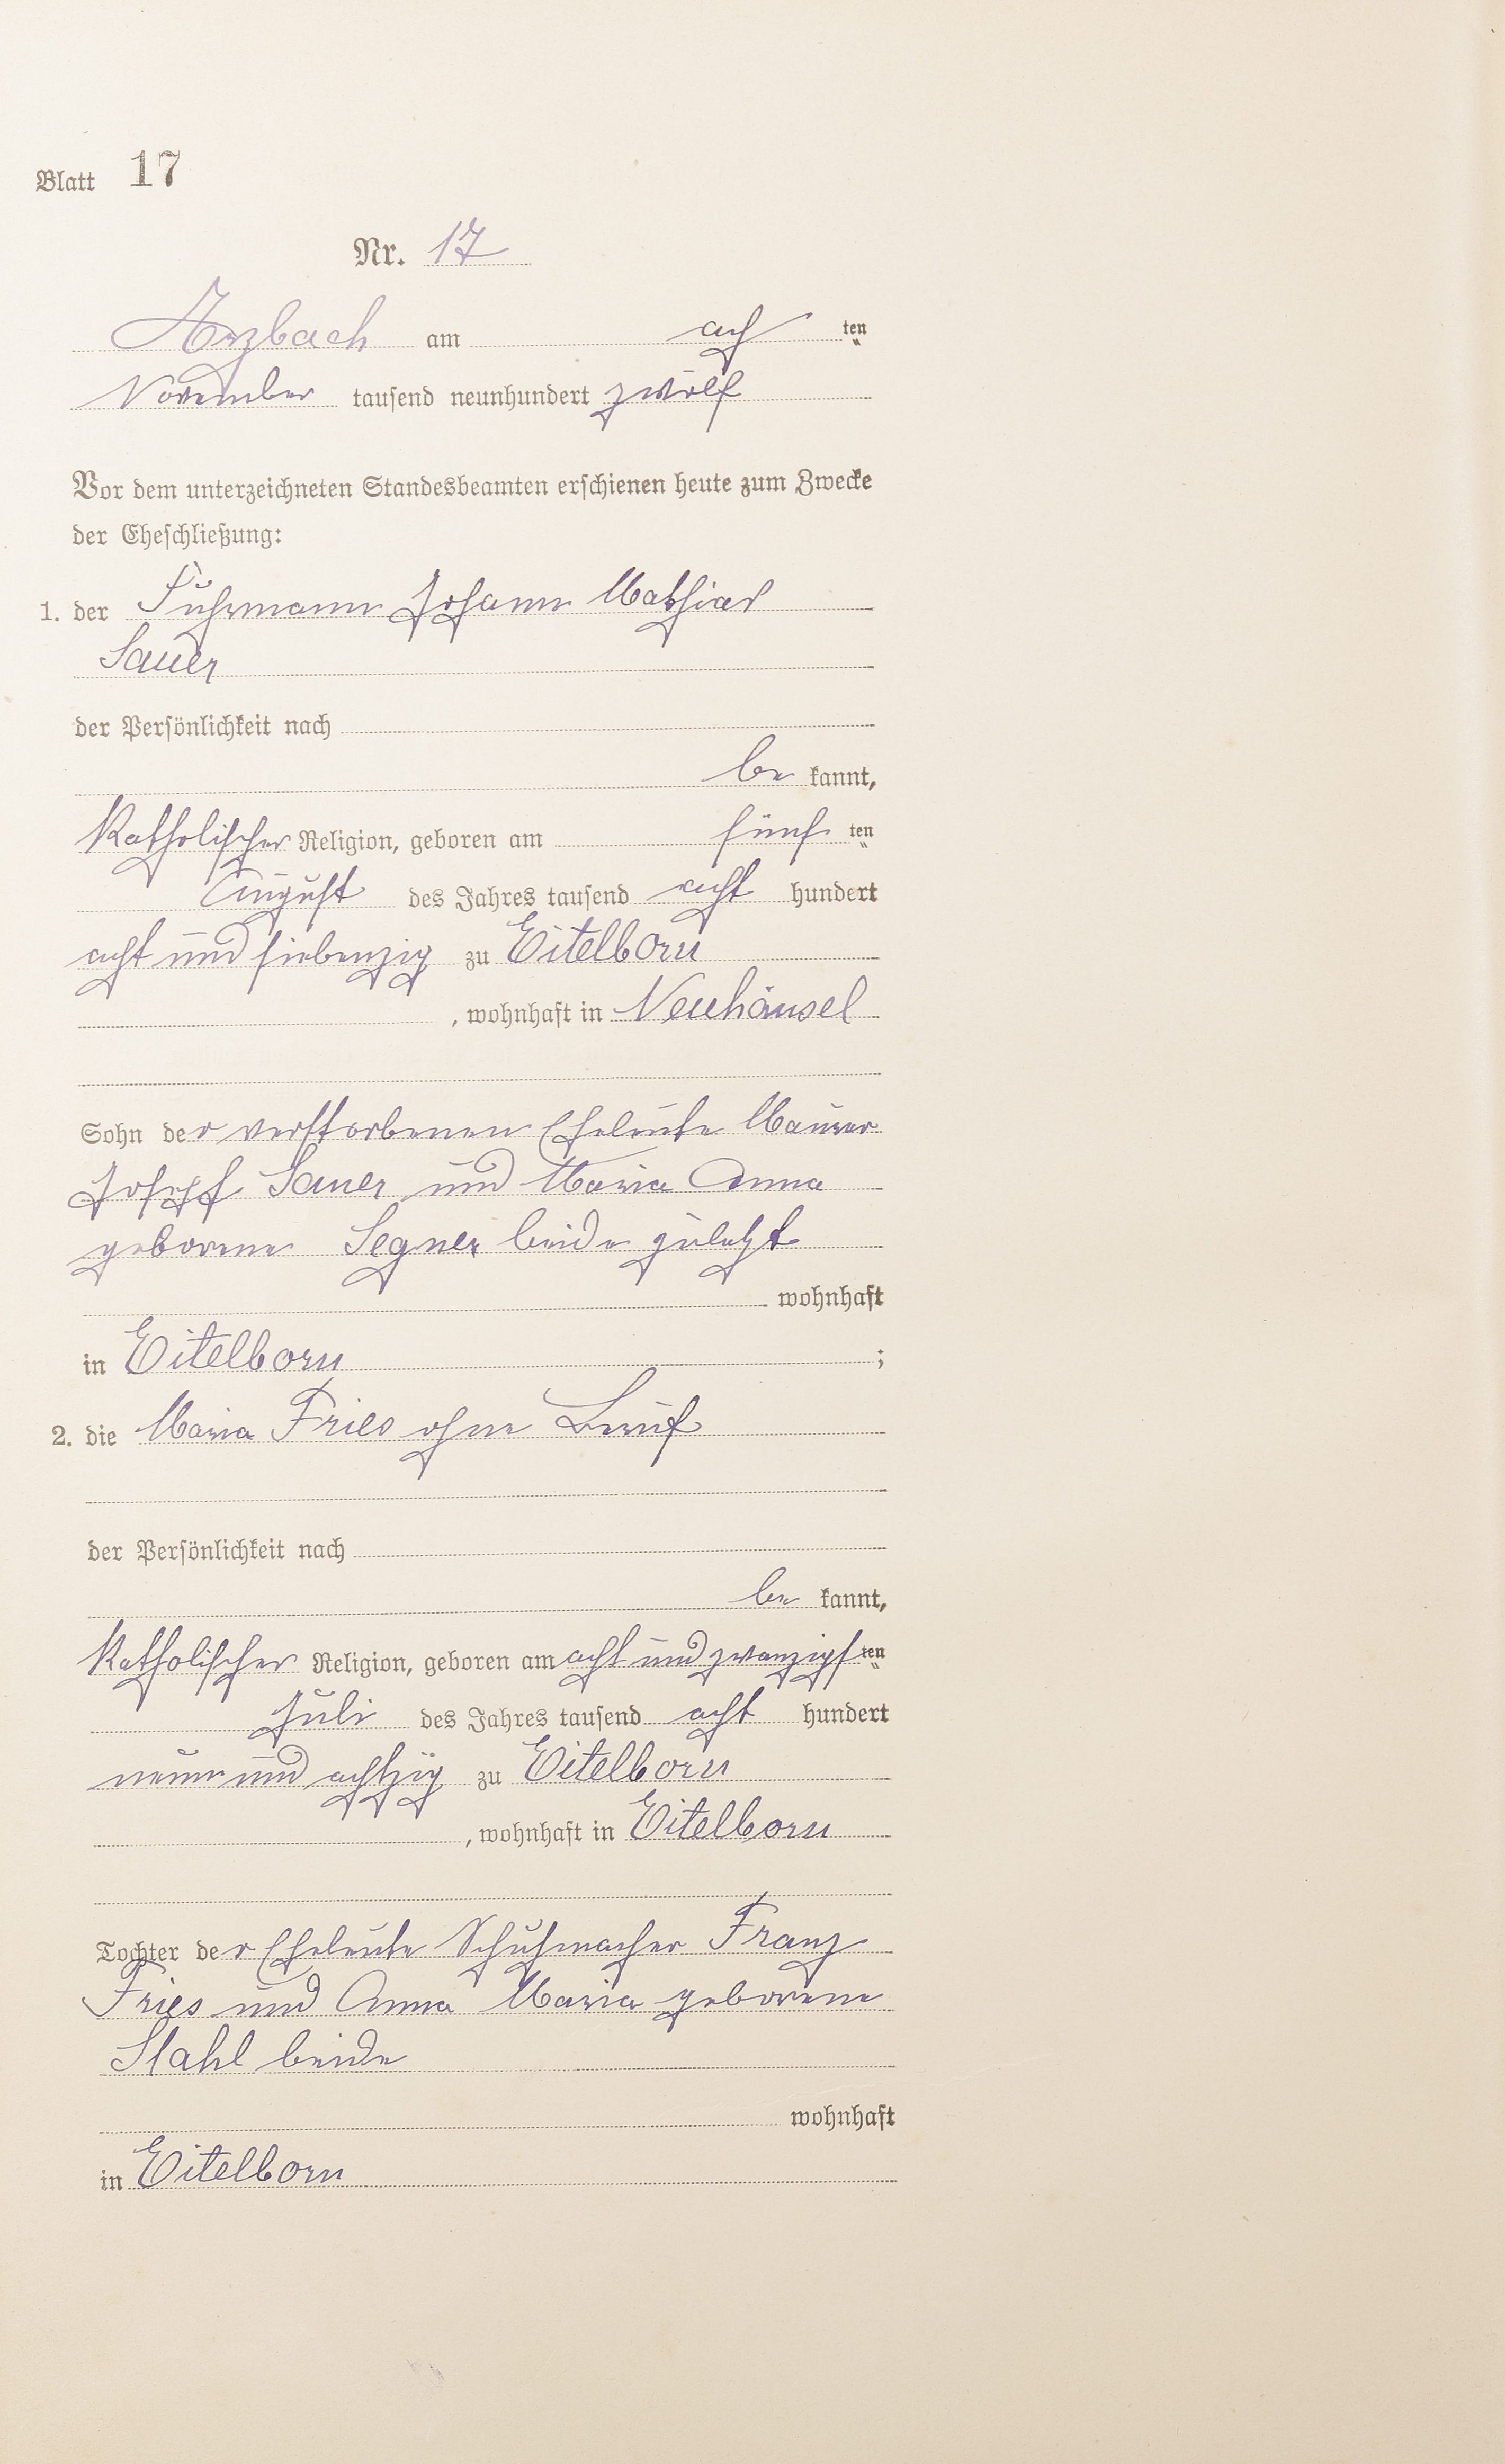 Blatt 17
Nr. 17
Arzbach am ach ten
November tausend neunhundert zwölf
Vor dem unterzeichneten Standesbeamten erschienen heute zum Zwecke
der Eheschließung:
1. der Fuhrmann Johann Mathias
Sauer
der Persönlichkeit nach
be kannt,
Katholischer Religion, geboren am fünf ten
August des Jahres tausend acht hundert
acht und siebenzig zu Eitelborn
, wohnhaft in Neuhäusel
Sohn der verstorbenen Eheleute Maurer
Joseph Sauer und Maria Anna
geborene Segner beide zuletzt
wohnhaft
in Eitelborn ;
2. die Maria Fries ohne Beruf
der Persönlichkeit nach
be kannt,
Katholischer Religion, geboren am acht und zwanzigsten
Juli des Jahres tausend acht hundert
neun und achtzig zu Eitelborn
, wohnhaft in Eitelborn
Tochter der Eheleute Schuhmacher Franz
Fries und Anna Maria geborene
Stahl beide
wohnhaft
in Eitelborn